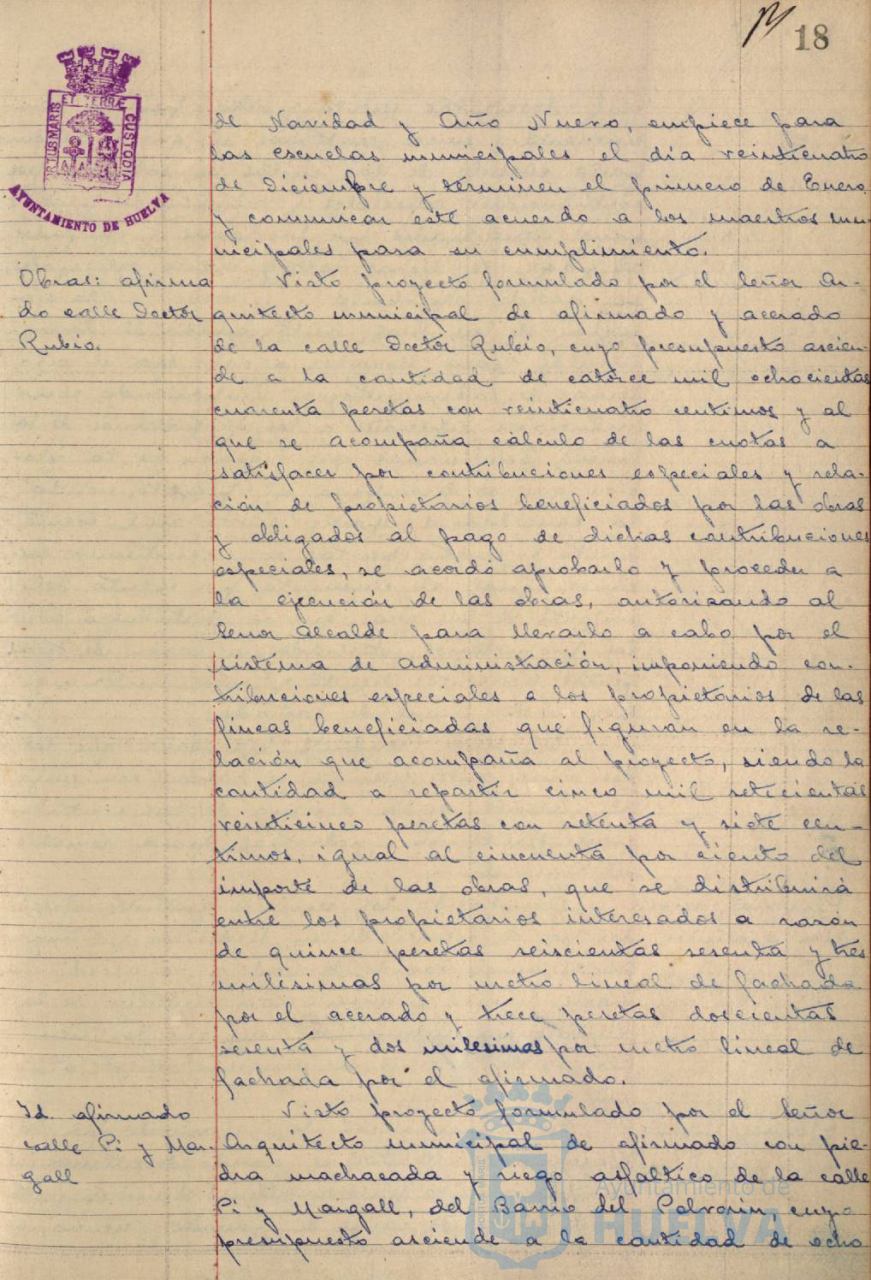 18
PORTUS MARIS ET TERRÆ CUSTODIA
AYUNTAMIENTO DE HUELVA
de Navidad y Año Nuevo, empiece para
las escuelas municipales el día veinticuatro
de Diciembre y terminen el primero de Enero
y comunicar este acuerdo a los maestros mu-
nicipales para su cumplimiento.
Obras: afirma
do calle Doctor
Rubio.
Visto proyecto formulado por el Señor Ar-
quitecto municipal de afirmado y acerado
de la calle Doctor Rubio, cuyo presupuesto ascien-
de a la cantidad de catorce mil ochocientas
cuarenta pesetas con veinticuatro centimos y al
que se acompaña cálculo de las cuotas a
satisfacer por contribuciones especiales y rela-
ción de propietarios beneficiados por las obras
y obligados al pago de dichas contribuciones
especiales, se acordó aprobarlo y proceder a
la ejecución de las obras, autorizando al
Señor Alcalde para llevarlo a cabo por el
sistema de administración, imponiendo con-
tribuciones especiales a los propietarios de las
fincas beneficiadas que figuran en la re-
lación que acompaña al proyecto, siendo la
cantidad a repartir cinco mil setecientas
veinticinco pesetas con setenta y siete cen-
timos, igual al cincuenta por ciento del
importe de las obras, que se distribuirá
entre los propietarios interesados a razón
de quince pesetas seiscientas sesenta y tres
milésimas por metro lineal de fachada
por el acerado y trece pesetas doscientas
sesenta y dos milesimas por metro lineal de
fachada por el afirmado.
Id. afirmado
calle Pi y Mar-
gall
Visto proyecto formulado por el Señor
Arquitecto municipal de afirmado con pie-
dra machacada y riego asfaltico de la calle
Pi y Margall, del Barrio del Polvorin, cuyo
presupuesto asciende a la cantidad de ocho
Ayuntamiento de
HUELVA